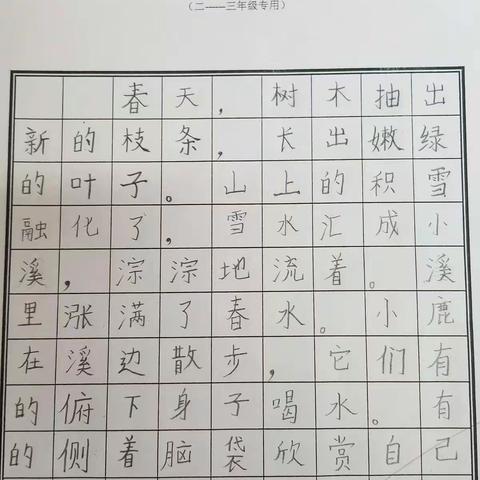 （二——三年级专用）
春天，树木抽出
新的枝条，长出嫩绿
的叶子。山上的积雪
融化了，雪水汇成小
溪，淙淙地流着。溪
里涨满了春水。小鹿
在溪边散步，它们有
的俯下身子喝水。有
的侧着脑袋欣赏自己